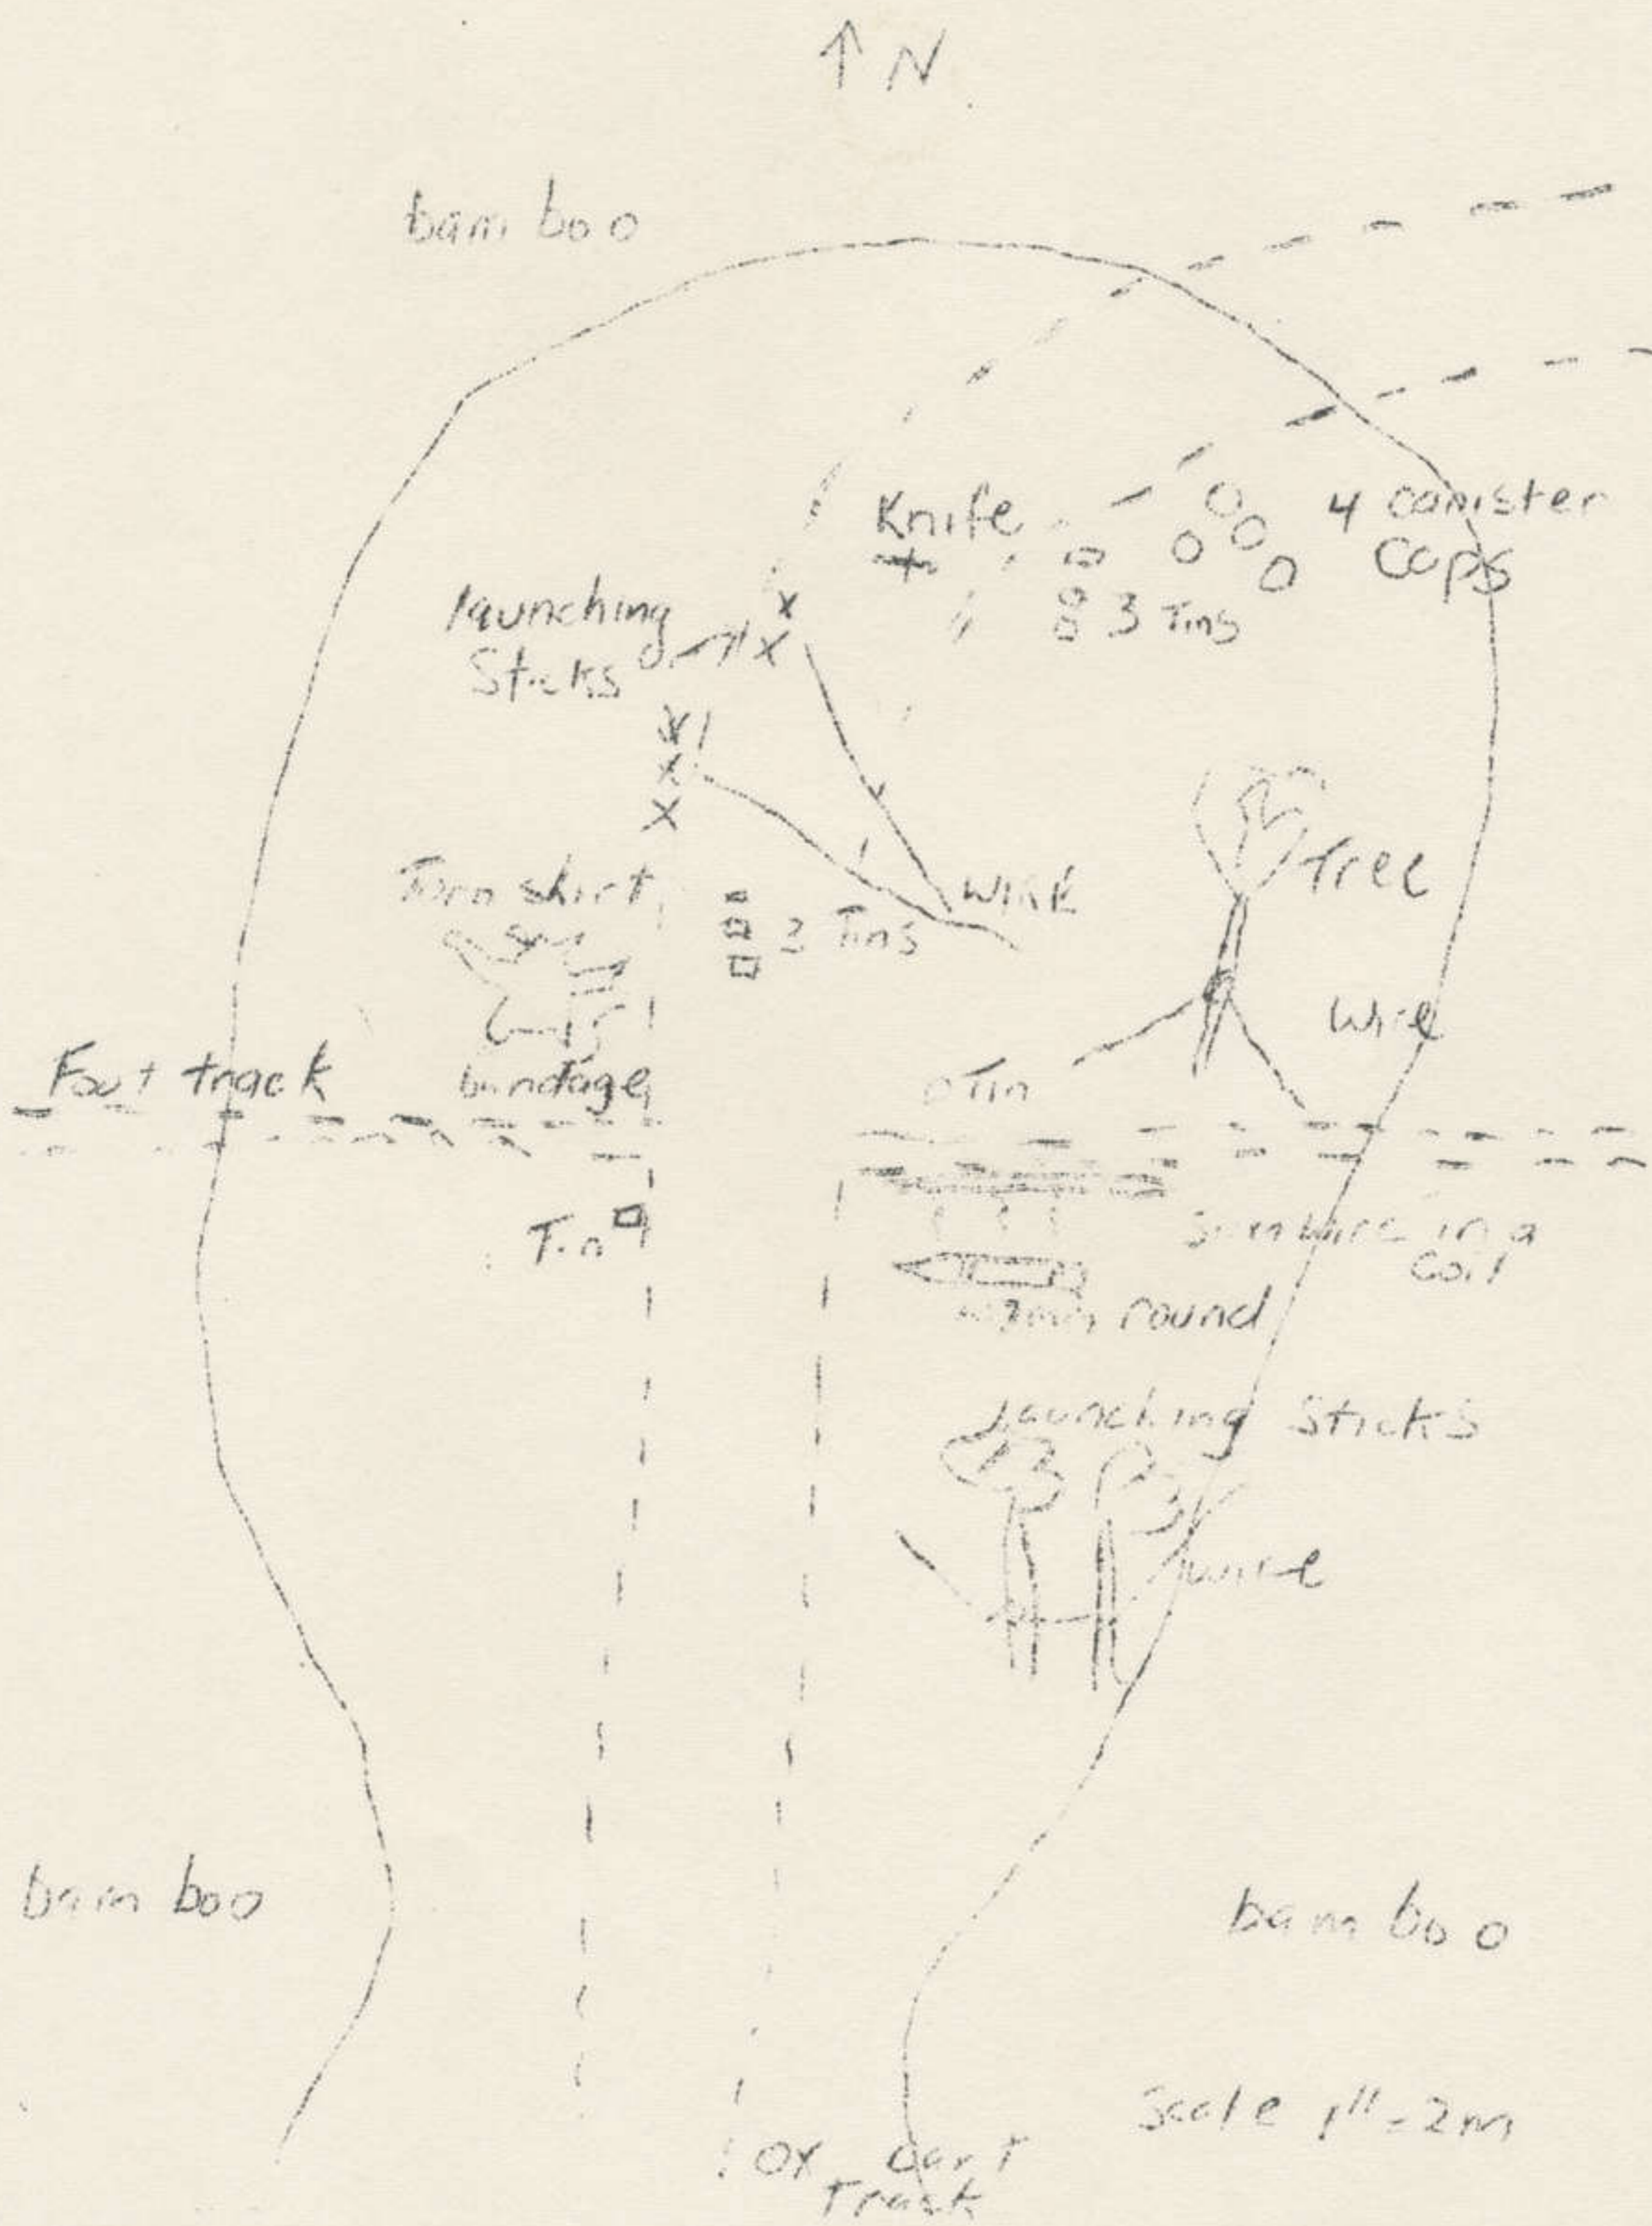 ↑ N
bamboo
Knife
4 canister
Caps
3 Tins
launching
Sticks
Torn shirt
3 Tins
WIRE
Tree
Wire
Foot track
bandage
Tin
Tin
wire in a
Coil
round
Launching Sticks
wire
bamboo
bamboo
Scale 1"=2m
Ox Cart
Track